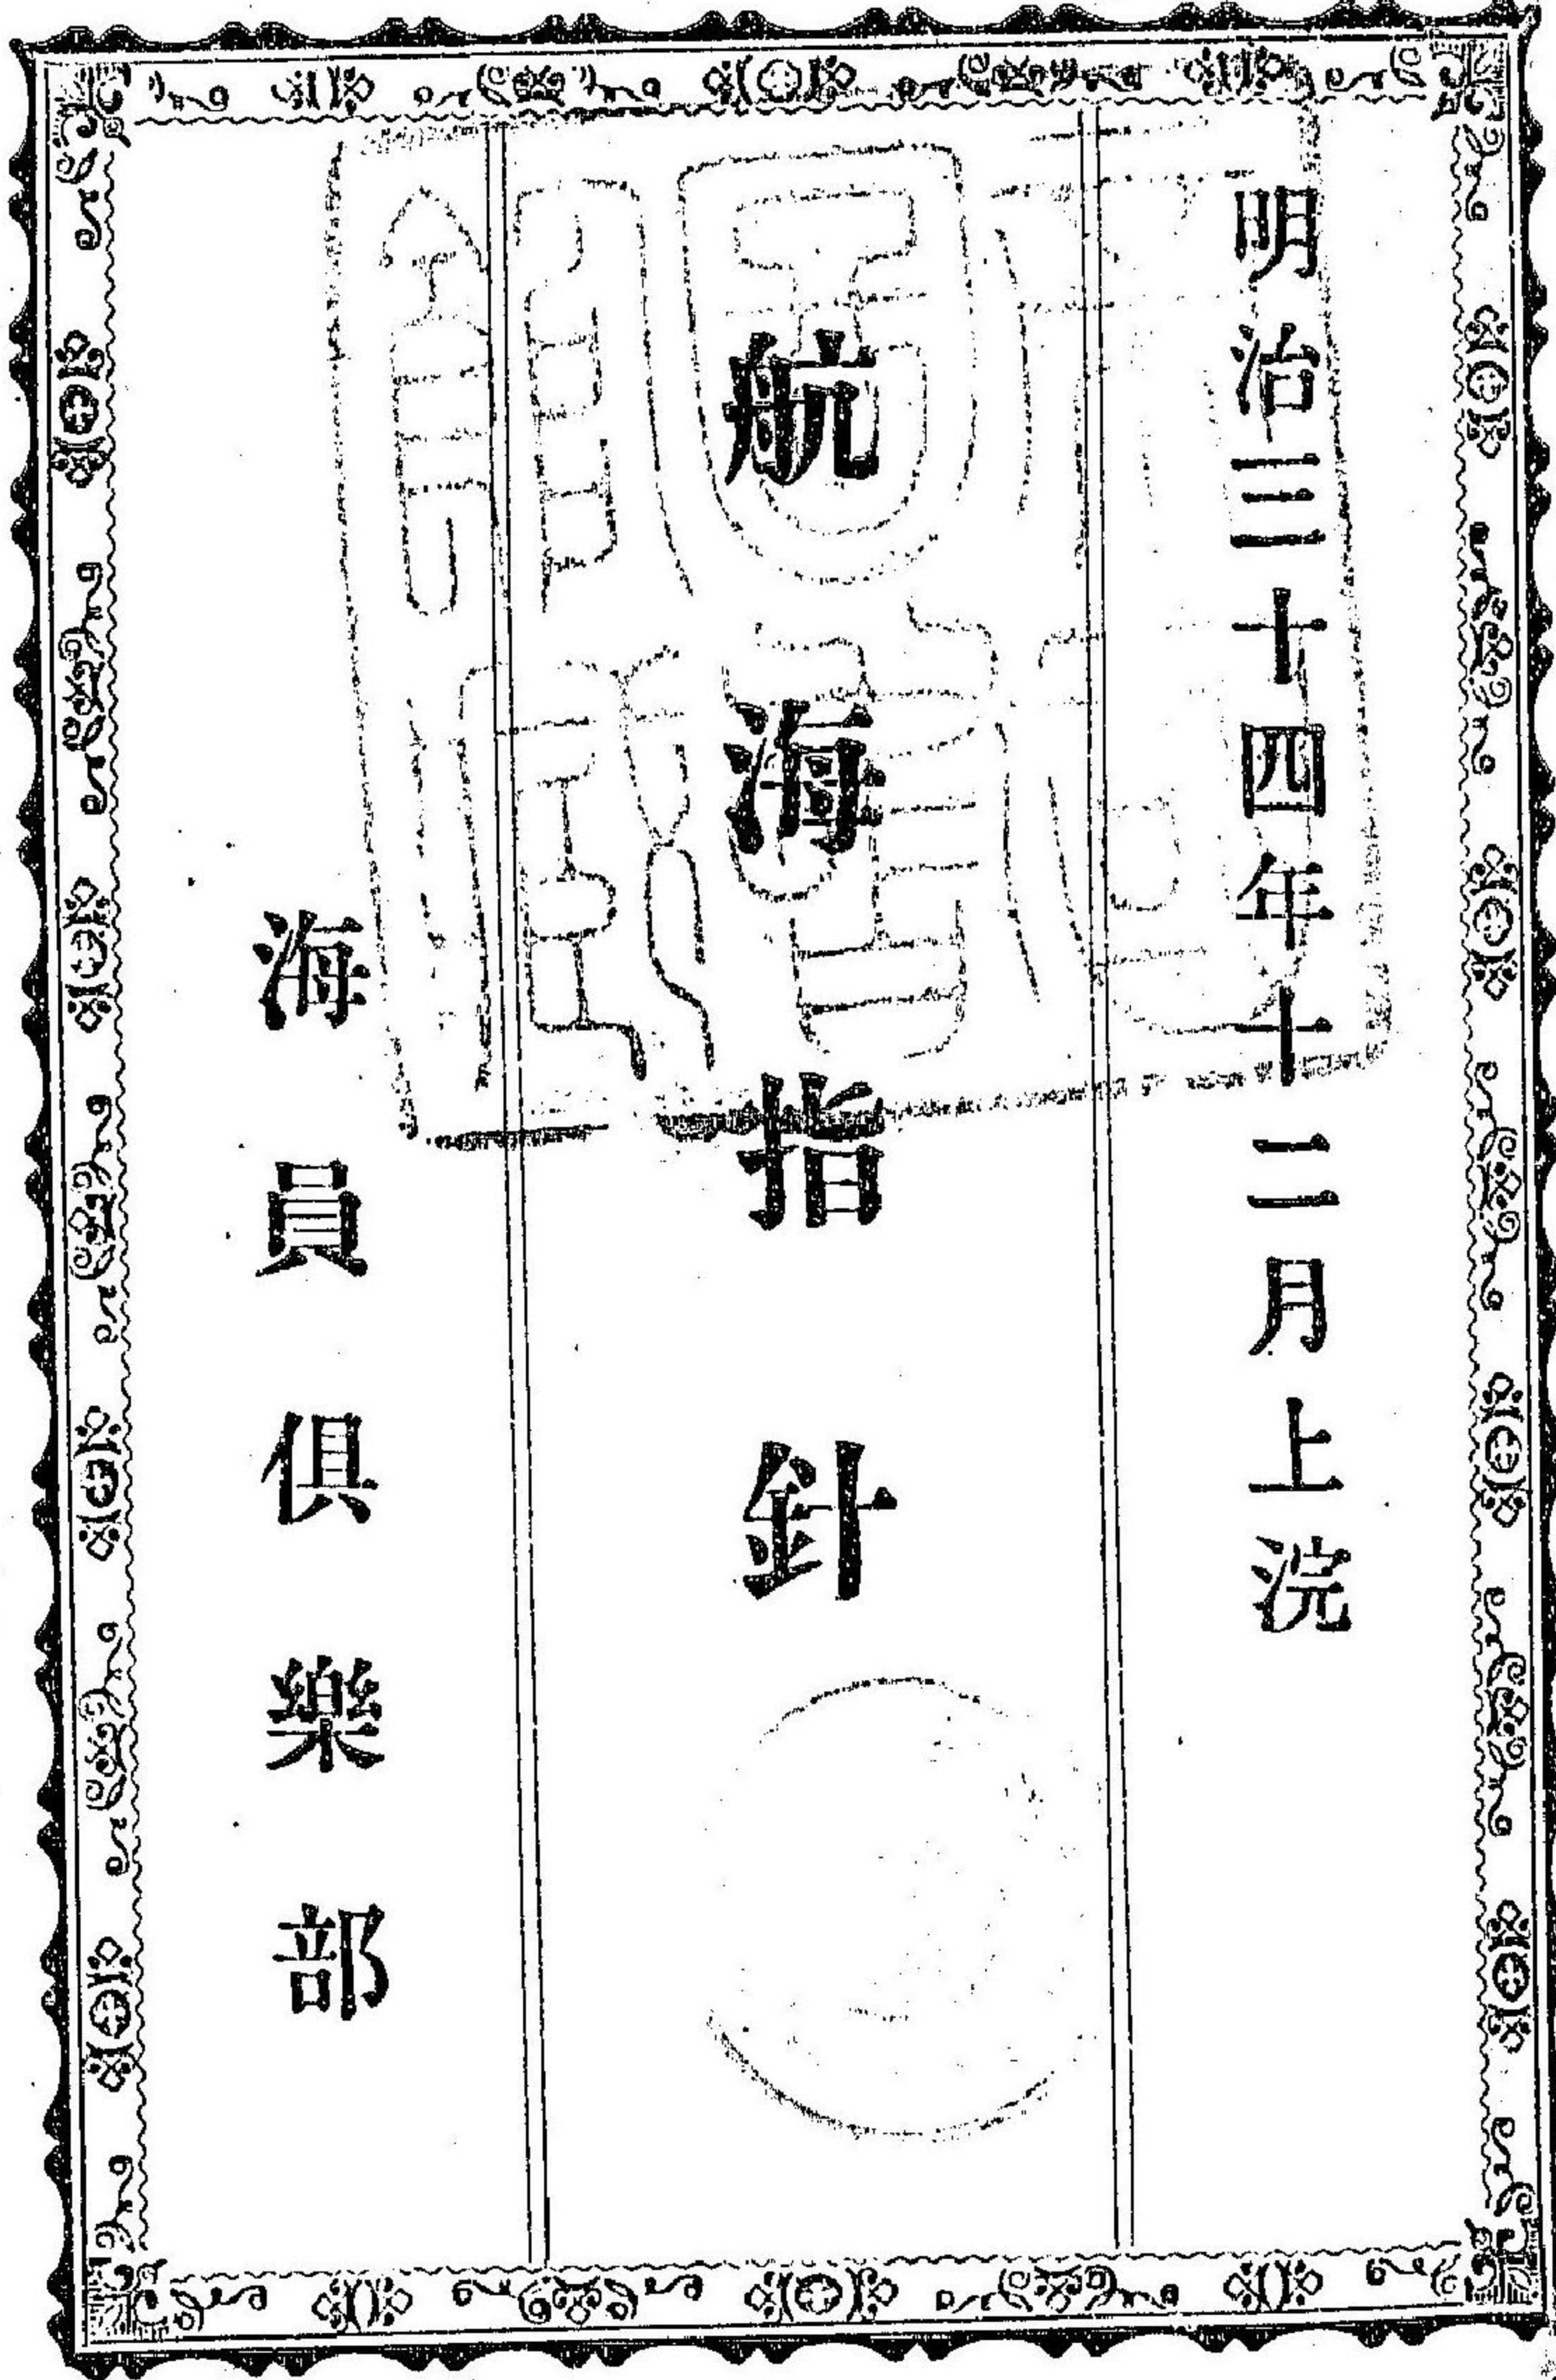 明治三十四年十二月上浣
航海指針
海員俱樂部